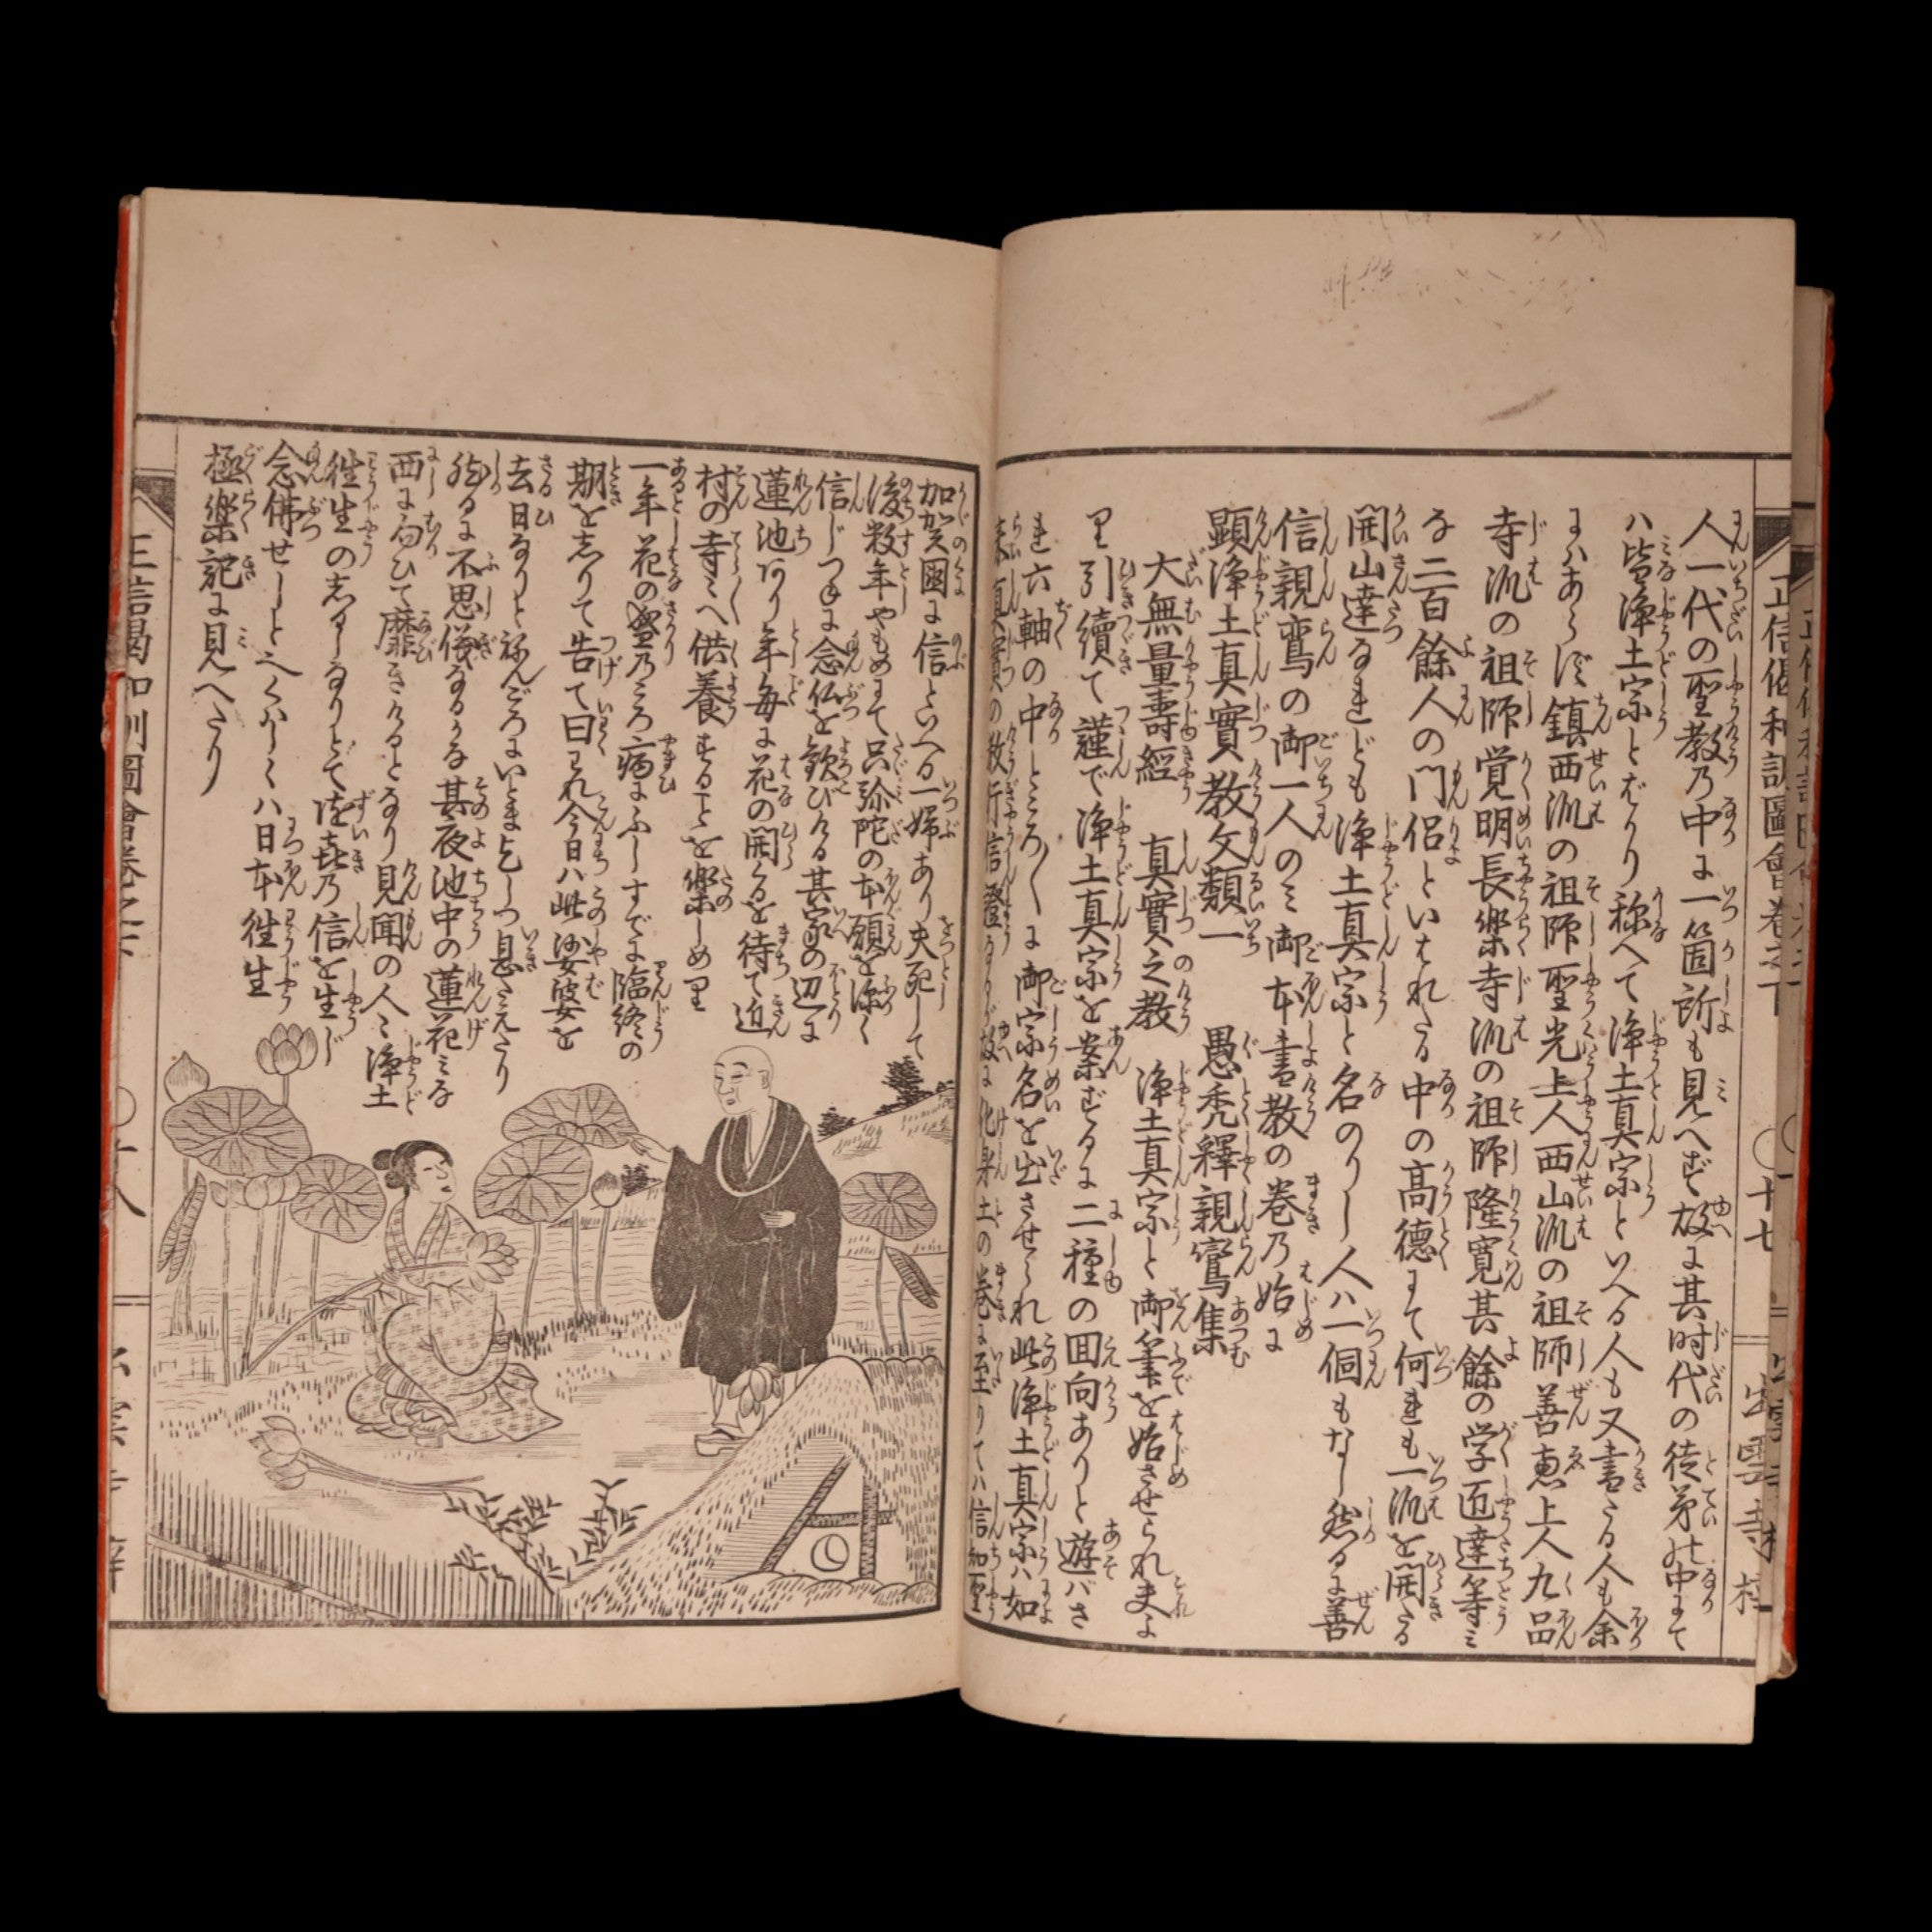 正信偈和訓圖會卷之下
〇十七
人一代の聖教乃中に一箇所も見へず故に其时代の徒弟の中にて
ハ皆浄土宗とばかり称へて浄土真宗といへる人も又書たる人も余り
にハあらじ鎮西派の祖師聖光上人西山派の祖師善恵上人九品
寺派の祖師覚明長楽寺派の祖師隆寛其餘の学匠達等ミ
な二百餘人の門侶といはれたる中の高徳にて何れも一派を開たる
開山達なれども浄土真宗と名のりし人ハ一個もなし然るに善
信親鸞の御一人のミ御本書教の巻乃始に
顕浄土真實教文類一　愚禿釋親鸞集
大無量壽經　真實之教　浄土真宗
と御筆を始させられ夫よ
り引續て謹で浄土真宗を案ずるに二種の回向ありと遊バさ
れ六軸の中ところ〲に御宗名を出させられ此浄土真宗ハ如
来真實の教行信證なるが故に化身土の巻に至りてハ信知聖
加賀國に信といへる一婦あり夫死して
後数年やもめにて只弥陀の本願を深く
信じつねに念仏を歓びける其家の辺に
蓮池あり年毎に花の開くるを待て近
村の寺〻へ供養することを楽しめり
一年花の盛乃ころ病にふしすでに臨終の
期を志りて告て曰われ今日ハ此娑婆を
去日なりとねんごろにいとま乞しつ息たえたり
然るに不思儀なるかな其夜池中の蓮花ミな
西に向ひて靡きけるとなり見聞の人〻浄土
徃生の志るしなりとて随㐂乃信を生じ
念佛せしとへくハしくハ日本徃生
極樂記に見へたり